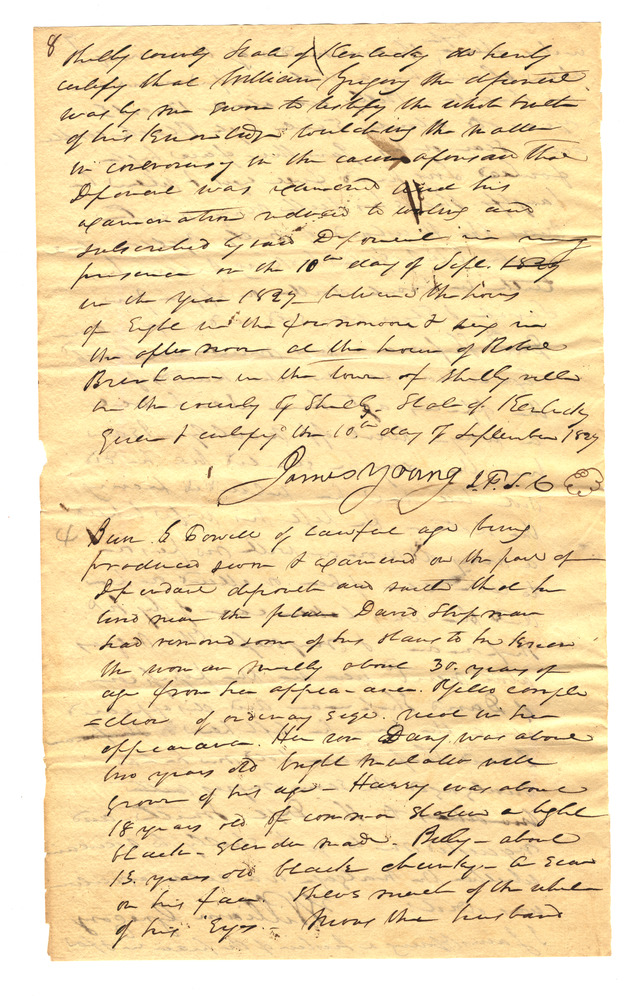 8
Shelby county State of Kentucky do hereby
certify that William Gregory the deponent
was by me sworn to testify the whole truth
of his Knowledge touching the matter
in controversy in the cause aforesaid that
Deponent was examined and his
examination reduced to writing and
subscribed by said Deponent in my
presence on the 10th day of Sept. 1829
in the year 1829 between the hours
of Eight in the forenoon & six in
the afternoon at the house of
in the town of Shelbyville
in the county of Shelby State of Kentucky
Given & certify this 10th day of September 1829
James Young J. P. S. C
of lawful age being
produced sworn & examined on the part of
Defendant deposeth and saith that he
lived near the place David Shipman
had removed some of his slaves to he Knew
the woman Milly about 30. years of
age from her appearance. Yello comple
=ction of ordinary size. neat in her
appearance. Her son Dany, was about
two years old bright mulatto well
grown of his age - Harry was about
18 years old of common Stature a light
black - slender made. Billy - about
15. years old black chunky - a scar
on his face shews much of the white
of his Eyes - the husband